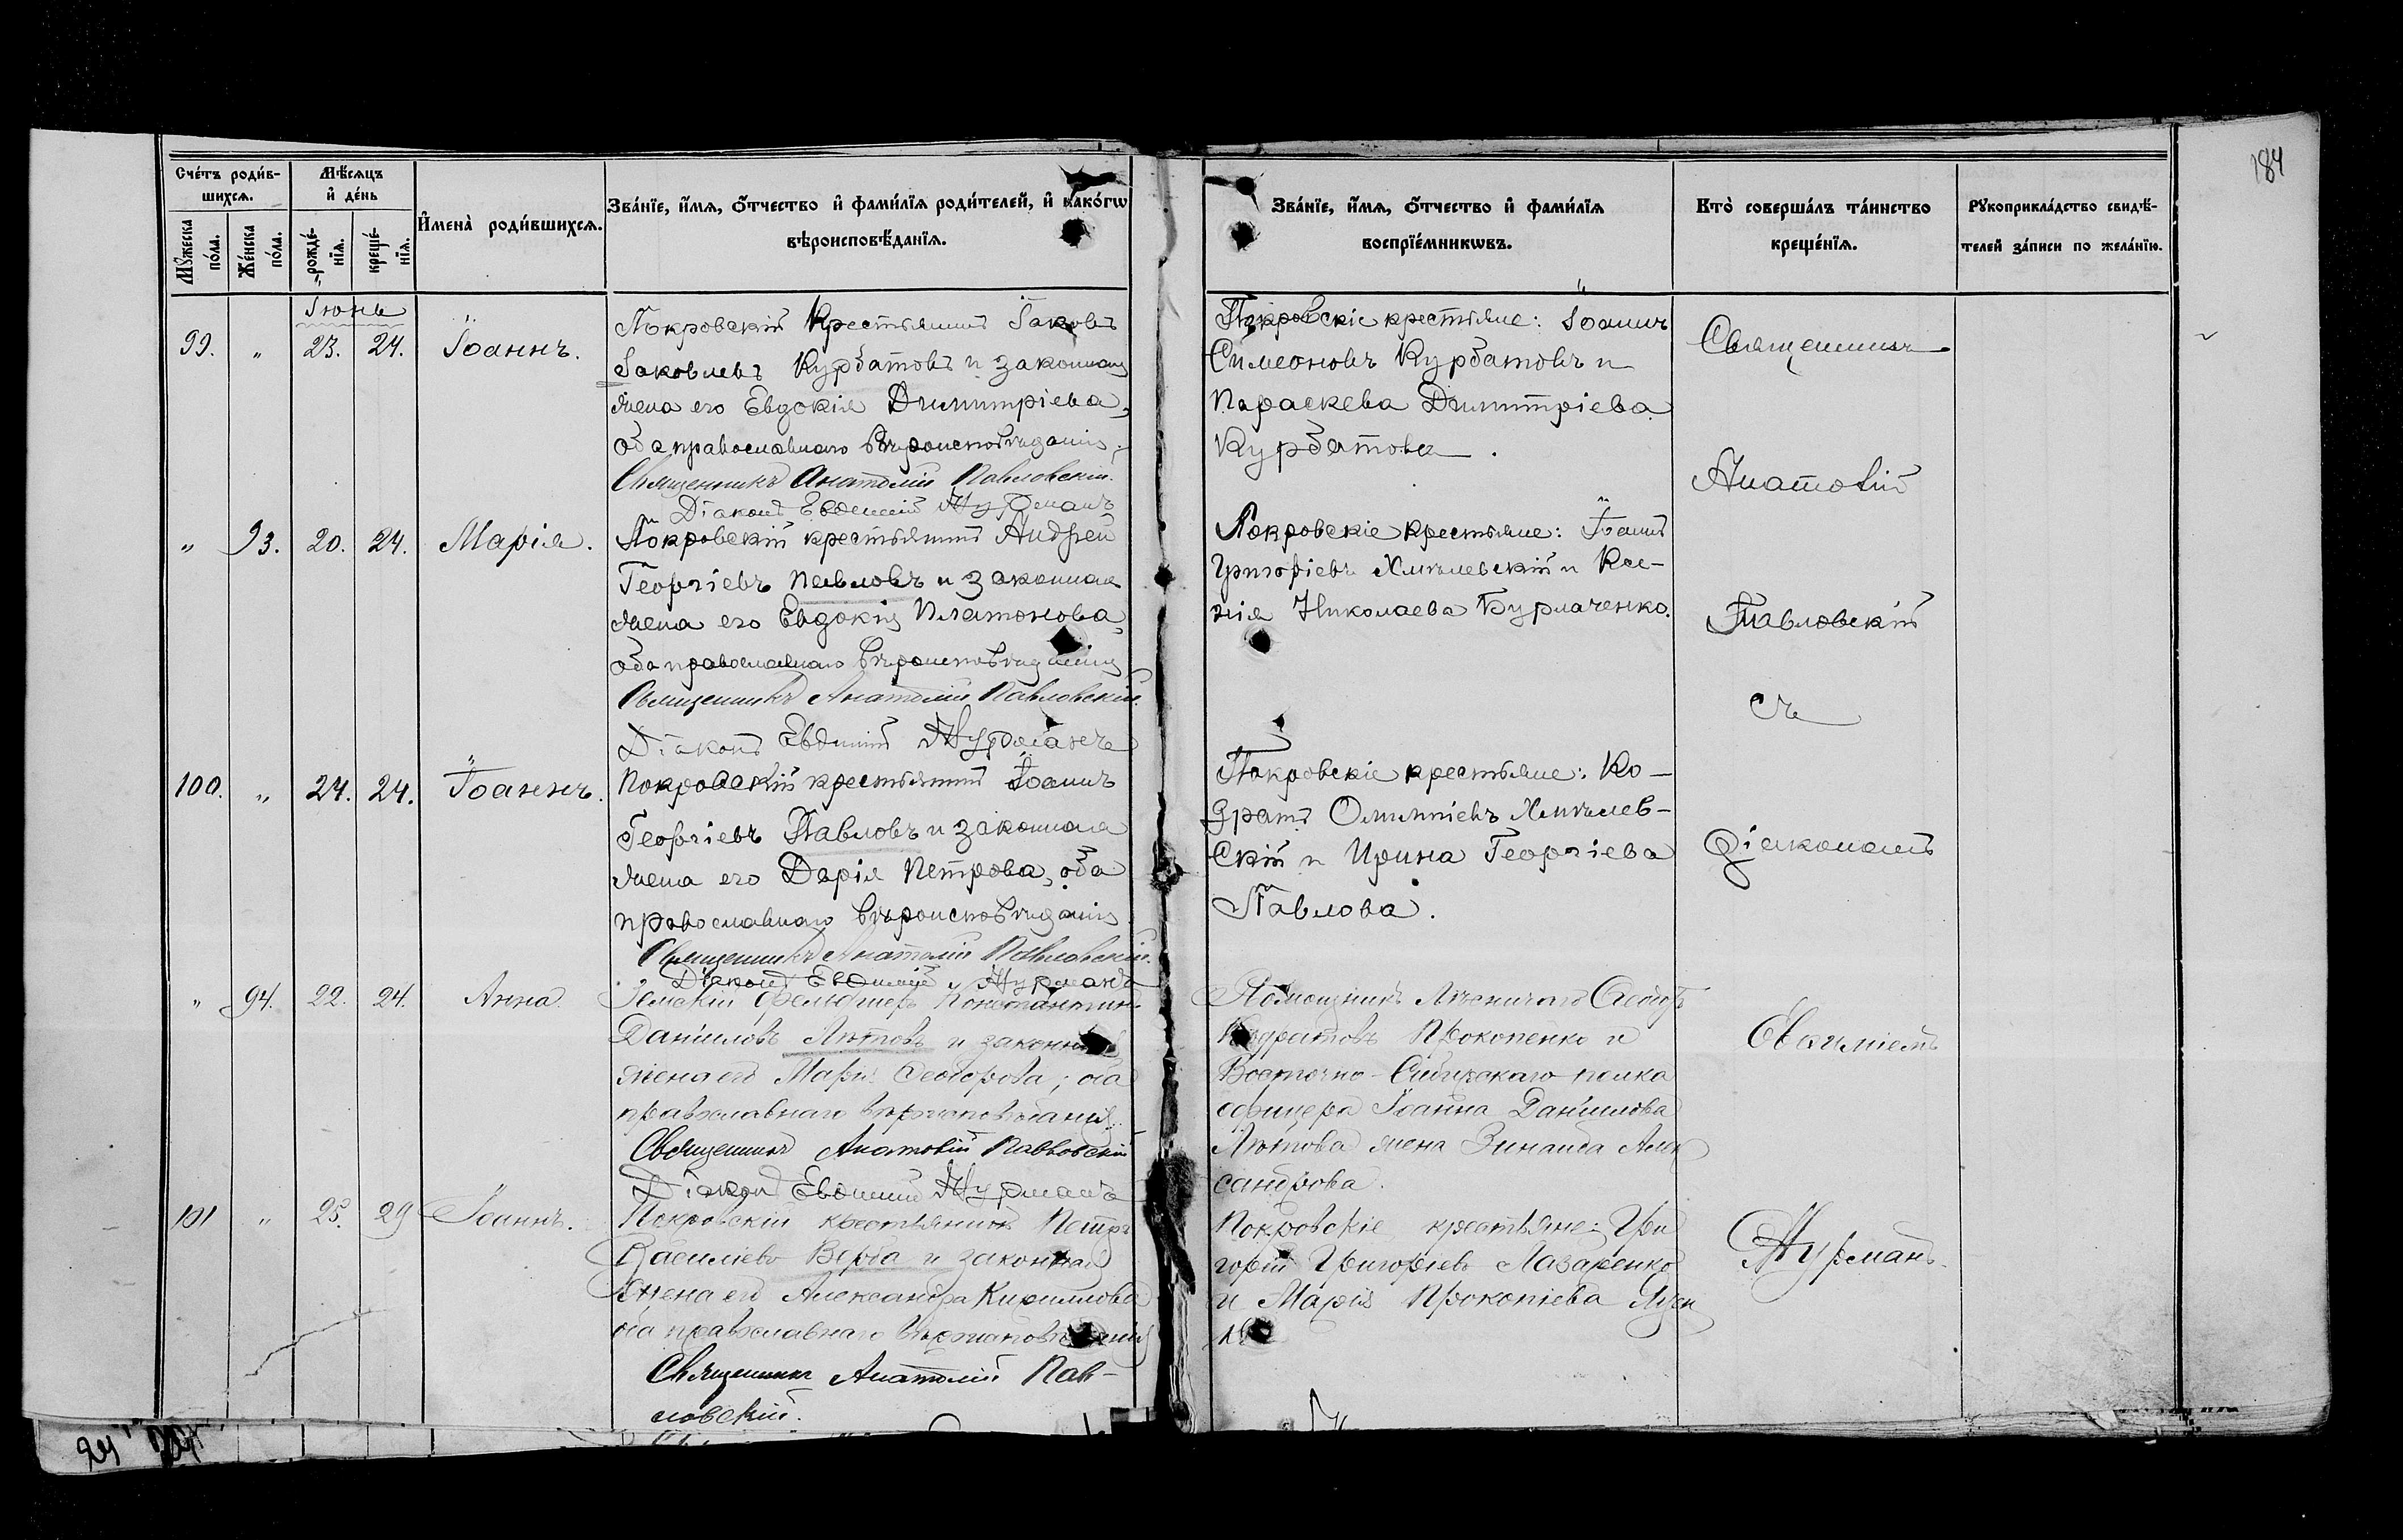 184
Счéтъ роди́в-
шихсѧ.
Мѣ́сѧцъ
и҆ де́нь
Мꙋ́жеска
по́ла.
Же́нска
по́ла.
рожде́-
нїѧ.
креще́-
нїѧ.
И҆мена̀ роди́вшихсѧ.
Зва́нїе, и҆́мѧ, ѻ҆́тчество и҆ фами́лїѧ роди́телей, и҆ како́гѡ
вѣроисповѣ́данїѧ.
Зва́нїе, и҆́мѧ, ѻ҆́тчество и҆ фами́лїѧ
воспрїе́мникѡвъ.
Кто̀ соверша́лъ та́инство
креще́нїѧ.
Рꙋкоприкла́дство свидѣ́-
телей за́писи по жела́нїю.
Іюнь
99. „ 23. 24. Іоаннъ.
Покровскій Крестьянинъ Іаковъ
Іаковлевъ Курбатовъ и законная
жена его Евдокія Димитріева,
оба православнаго вѣроисповѣданія.
Священникъ Анатолій Павловскій.
Діаконъ Евѳимій Журманъ
Покровскіе крестьяне: Іоаннъ
Симеоновъ Курбатовъ и
Параскева Димитріева
Курбатова.
„ 93. 20. 24. Марія.
Покровскій крестьянинъ Андрей
Георгіевъ Павловъ и законная
жена его Евдокія Платонова,
оба православнаго вѣроисповѣданія
Священникъ Анатолій Павловскій.
Діаконъ Евѳимій Журманъ
Покровскіе крестьяне: Іоаннъ
Григоріевъ Хмѣлевскій и Ксе-
нія Николаева Бурлаченко.
100. „ 24. 24. Іоаннъ.
Покровскій крестьянинъ Іоаннъ
Георгіевъ Павловъ и законная
жена его Дарія Петрова, оба
православнаго вѣроисповѣданія
Священникъ Анатолій Павловскій.
Діаконъ Евѳимій Журманъ
Покровскіе крестьяне: Ко-
дратъ Олимпіевъ Хмѣлев-
скій и Ирина Георгіева
Павлова.
„ 94. 22. 24. Анна.
Земскій фельдшеръ Константинъ
Даніиловъ Лютовъ и законная
жена его Марія Ѳеодорова; оба
православнаго вѣроисповѣданія.
Священникъ Анатолій Павловскій
Діаконъ Евѳимій Журманъ
Помощникъ Ѳеодоръ
Кодратовъ Прокопенко и
Восточно-Сибирскаго полка
офицера Іоанна Даніилова
Лютова жена Зинаида Алек
сандрова.
101 „ 25. 29 Іоаннъ.
Покровскій крестьянинъ Петръ
Василіевъ Верба и законная
жена его Александра Кириллова
оба православнаго вѣроисповѣданія
Священникъ Анатолій Пав-
ловскій.
Покровскіе крестьяне: Гри
горій Григоріевъ Лазаренко
и Марія Прокопіева
Священникъ
Анатолій
Павловскій
съ
діакономъ
Евѳиміемъ
Журманъ.